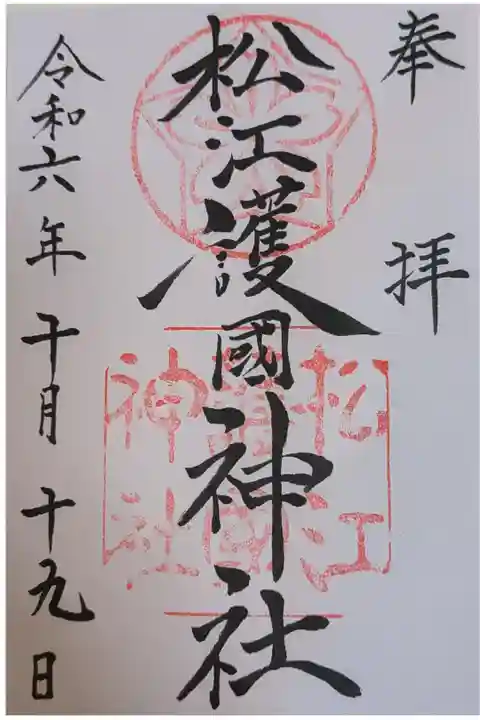 奉拝
松江護國神社
松江護國神社
令和六年十月十九日